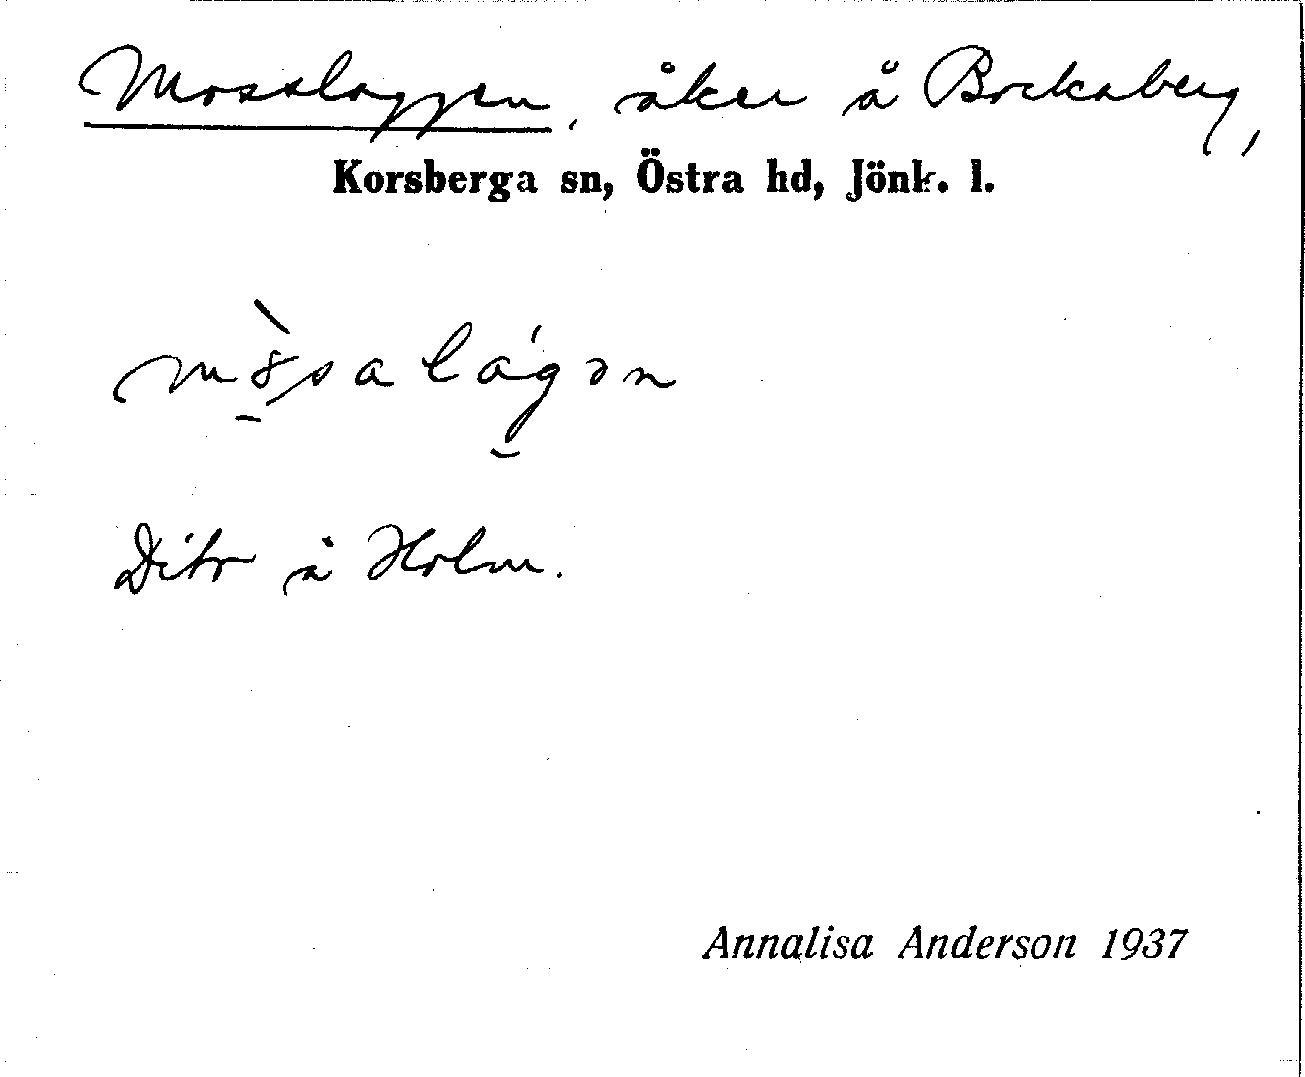 Mossloggen, åker å Bockaberg,
Korsberga sn, Östra hd, Jönk. l.
Dito å Holm.
Annalisa Anderson 1937